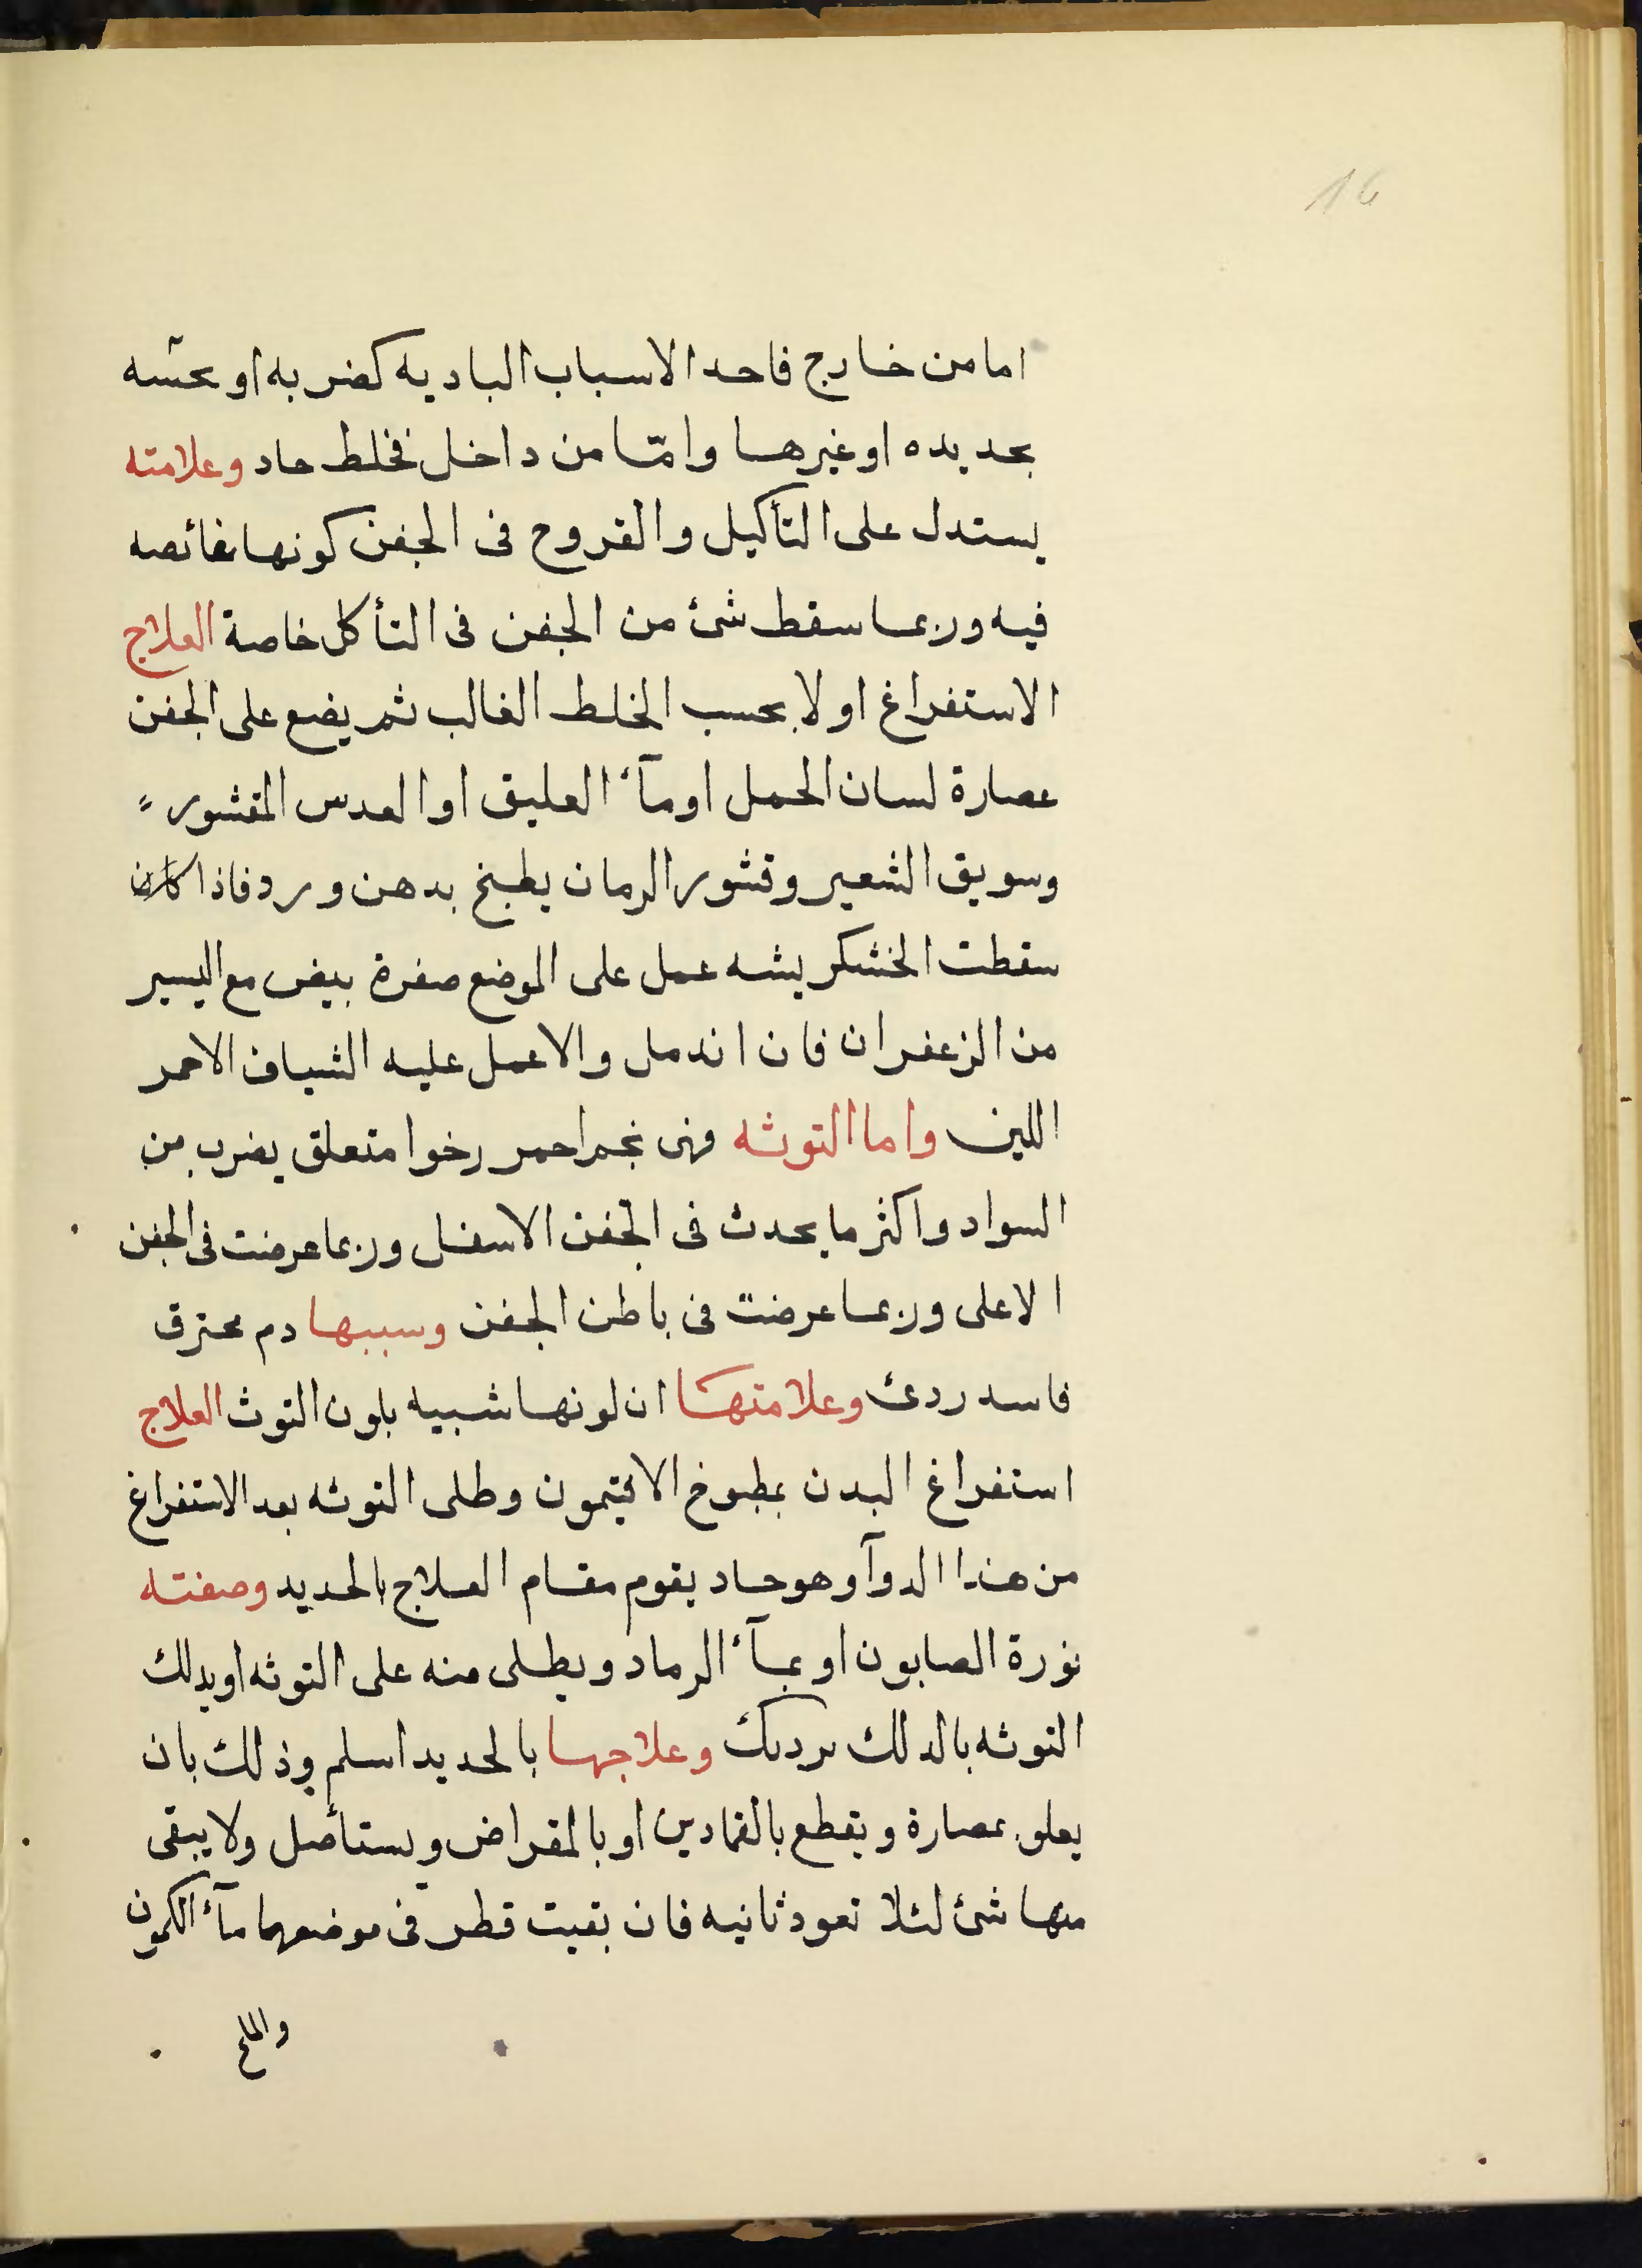 16
اما من خارج فاحد الاسباب الباديه كضربه او
بحديده او غيرها وامّا من داخل فخلط حاد وعلامته
يستدل على التأكيل والقروح فى الجفن كونها
فيه وربما سقط شئ من الجفن فى التأكل خاصة العلاج
الاستفراغ اولا بحسب الخلط الغالب ثم يضع على الجفن
عصارة لسان الحمل اومآء العليق او العدس المقشور
وسويق الشعير وقشور الرمان يطبخ بدهن ورد فاذا كان
سقطت الخشكريشه عمل على الموضع صفرة بيض مع اليسير
من الزعفران فان اندمل والا عمل عليه الشياف الاحمر
اللين واما التوثه فهى احمر رخوا متعلق يضرب من
السواد واكثر ما يحدث فى الجفن الاسفل وربما عرضت فى الجفن
الاعلى وربما عرضت فى باطن الجفن وسببها دم محترق
فاسد ردئ وعلامتها ان لونها شبيه بلون التوث العلاج
استفراغ البدن بمطبوخ الافتيمون وطلى التوثه بعد الاستفراغ
من هذا الدوآ وهو حاد يقوم مقام العلاج بالحديد وصفته
نورة الصابون او بمآء الرماد ويطلى منه على التوثه او يدلك
التوثه بالدلك وعلاجها بالحديد اسلم وذلك بان
يعلق عصارة ويقطع بالقمادين او بالمقراض ويستأصل ولا يبقى
منها شئ لئلا تعود ثانيه فان بقيت قطر فى موضعهما مآء الكمون
والملح